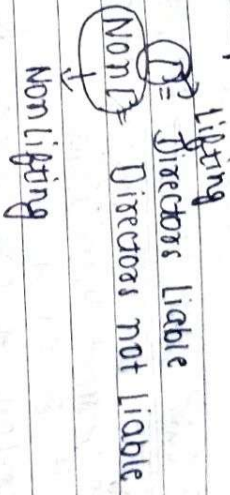 Lifting
L = Directors Liable
Non L = Directors not Liable
Non Lifting